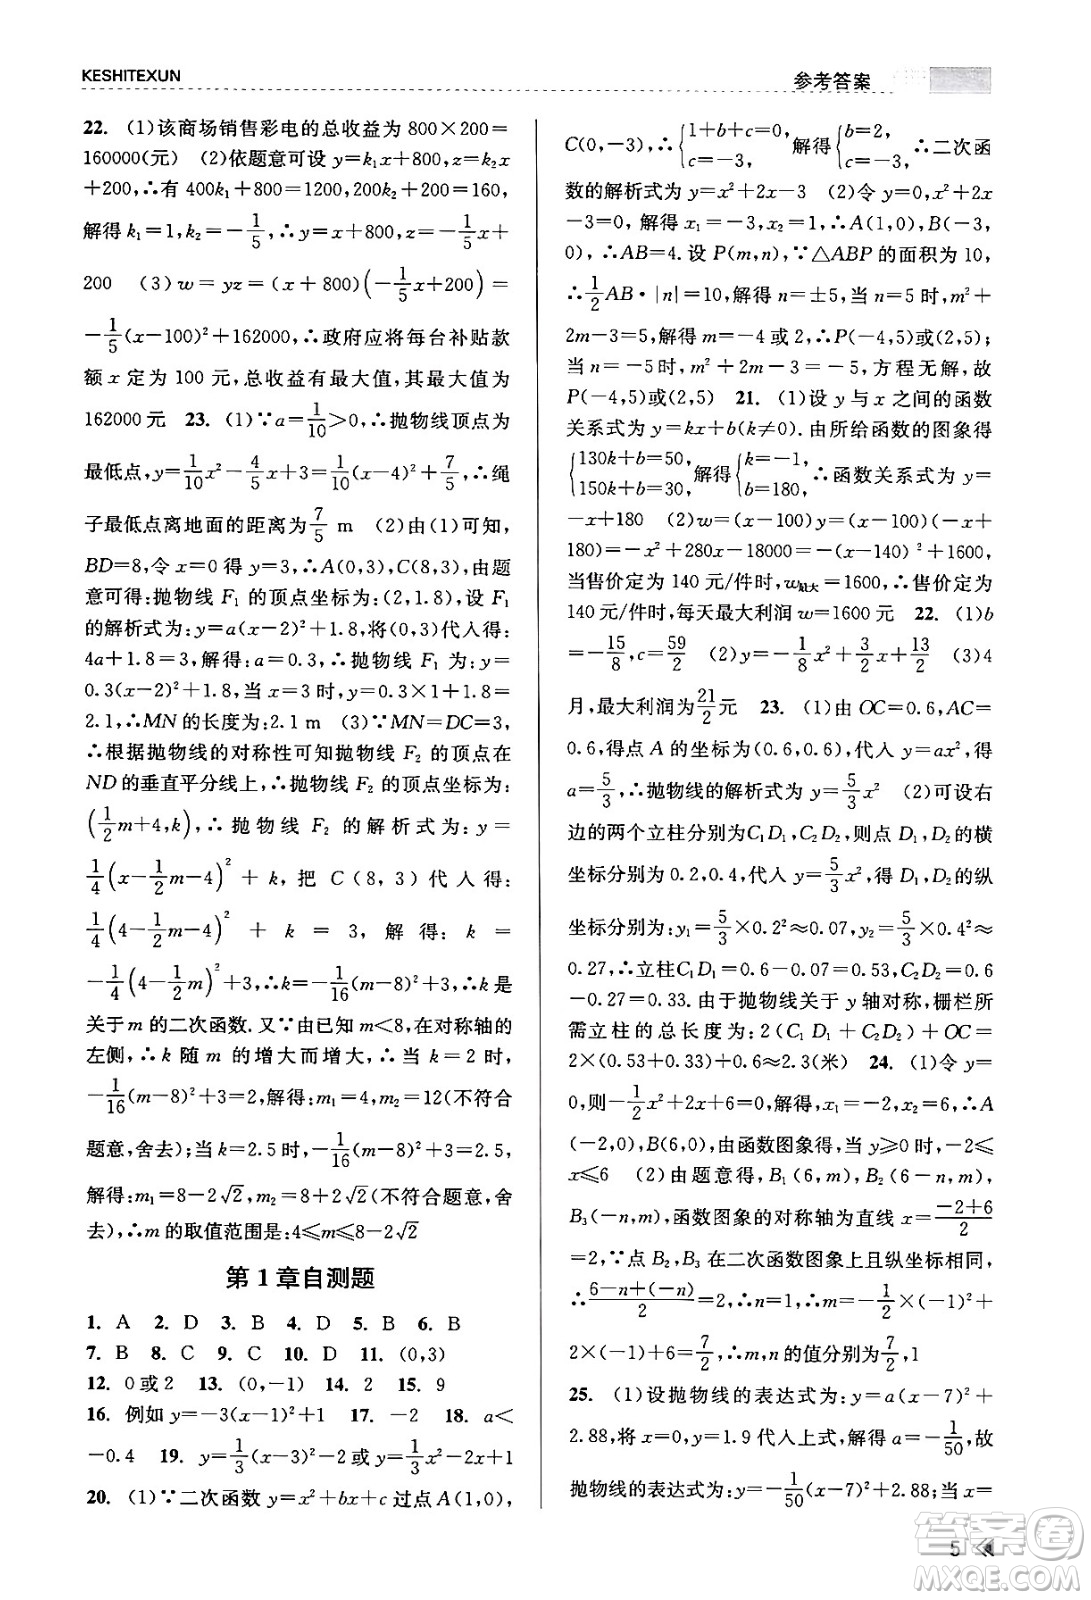 KESHITEXUN
参考答案
22. (1)该商场销售彩电的总收益为 800×200=
160000(元) (2)依题意可设 y=k₁x+800,z=k₂x
+200,∴有 400k₁+800=1200,200k₂+200=160,
解得 k₁=1,k₂=-1/5,∴y=x+800,z=-1/5x+
200 (3)w=yz=(x+800)(-1/5x+200)=
-1/5(x-100)²+162000,∴政府应将每台补贴款
额 x 定为 100 元,总收益有最大值,其最大值为
162000 元 23. (1)∵a=1/10>0,∴抛物线顶点为
最低点,y=1/10x²-4/5x+3=1/10(x-4)²+7/5,∴绳
子最低点离地面的距离为7/5 m (2)由(1)可知,
BD=8,令 x=0 得 y=3,∴A(0,3),C(8,3),由题
意可得:抛物线 F₁ 的顶点坐标为:(2,1.8),设 F₁
的解析式为:y=a(x-2)²+1.8,将(0,3)代入得:
4a+1.8=3,解得:a=0.3,∴抛物线 F₁ 为:y=
0.3(x-2)²+1.8,当 x=3 时,y=0.3×1+1.8=
2.1,∴MN 的长度为:2.1 m (3)∵MN=DC=3,
∴根据抛物线的对称性可知抛物线 F₂ 的顶点在
ND 的垂直平分线上,∴抛物线 F₂ 的顶点坐标为:
(1/2m+4,k),∴抛物线 F₂ 的解析式为:y=
1/4(x-1/2m-4)²+k,把 C(8,3)代入得:
1/4(4-1/2m-4)²+k=3,解得:k=
-1/4(4-1/2m-4)²+3,∴k=-1/16(m-8)²+3,∴k是
关于 m 的二次函数.又∵由已知 m<8,在对称轴的
左侧,∴k 随 m 的增大而增大,∴当 k=2 时,
-1/16(m-8)²+3=2,解得:m₁=4,m₂=12(不符合
题意,舍去);当 k=2.5 时,-1/16(m-8)²+3=2.5,
解得:m₁=8-2√2,m₂=8+2√2(不符合题意,舍
去),∴m 的取值范围是:4≤m≤8-2√2
第 1 章自测题
1. A 2. D 3. B 4. D 5. B 6. B
7. B 8. C 9. C 10. D 11. (0,3)
12. 0 或 2 13. (0,-1) 14. 2 15. 9
16. 例如 y=-3(x-1)²+1 17. -2 18. a<
-0.4 19. y=1/3(x-3)²-2 或 y=1/3x²-2x+1
20. (1)∵二次函数 y=x²+bx+c 过点 A(1,0),
C(0,-3),∴{1+b+c=0, c=-3, 解得{b=2, c=-3, ∴二次函
数的解析式为 y=x²+2x-3 (2)令 y=0,x²+2x
-3=0,解得 x₁=-3,x₂=1,∴A(1,0),B(-3,
0),∴AB=4.设 P(m,n),∵△ABP 的面积为 10,
∴1/2AB·|n|=10,解得 n=±5,当 n=5 时,m²+
2m-3=5,解得 m=-4 或 2,∴P(-4,5)或(2,5);
当 n=-5 时,m²+2m-3=-5,方程无解,故
P(-4,5)或(2,5) 21. (1)设 y 与 x 之间的函数
关系式为 y=kx+b(k≠0).由所给函数的图象得
{130k+b=50, 150k+b=30, 解得{k=-1, b=180, ∴函数关系式为 y=
-x+180 (2)w=(x-100)y=(x-100)(-x+
180)=-x²+280x-18000=-(x-140)²+1600,
当售价定为 140 元/件时,w最大=1600,∴售价定为
140 元/件时,每天最大利润 w=1600 元 22. (1)b
=-15/8,c=59/2 (2)y=-1/8x²+3/2x+13/2 (3)4
月,最大利润为21/2元 23. (1)由 OC=0.6,AC=
0.6,得点 A 的坐标为(0.6,0.6),代入 y=ax²,得
a=5/3,∴抛物线的解析式为 y=5/3x² (2)可设右
边的两个立柱分别为C₁D₁,C₂D₂,则点 D₁,D₂的横
坐标分别为 0.2,0.4,代入 y=5/3x²,得 D₁,D₂ 的纵
坐标分别为:y₁=5/3×0.2²≈0.07,y₂=5/3×0.4²≈
0.27,∴立柱C₁D₁=0.6-0.07=0.53,C₂D₂=0.6
-0.27=0.33.由于抛物线关于 y 轴对称,栅栏所
需立柱的总长度为:2(C₁D₁+C₂D₂)+OC=
2×(0.53+0.33)+0.6≈2.3(米) 24. (1)令 y=
0,则-1/2x²+2x+6=0,解得,x₁=-2,x₂=6,∴A
(-2,0),B(6,0),由函数图象得,当 y≥0 时,-2≤
x≤6 (2)由题意得,B₁(6,m),B₂(6-n,m),
B₃(-n,m),函数图象的对称轴为直线 x=(-2+6)/2
=2,∵点 B₂,B₃ 在二次函数图象上且纵坐标相同,
∴(6-n+(-n))/2=2,∴n=1,∴m=-1/2×(-1)²+
2×(-1)+6=7/2,∴m,n 的值分别为7/2,1
25. (1)设抛物线的表达式为:y=a(x-7)²+
2.88,将 x=0,y=1.9 代入上式,解得 a=-1/50,故
抛物线的表达式为:y=-1/50(x-7)²+2.88;当 x=
5
答案圈
MXQE.COM